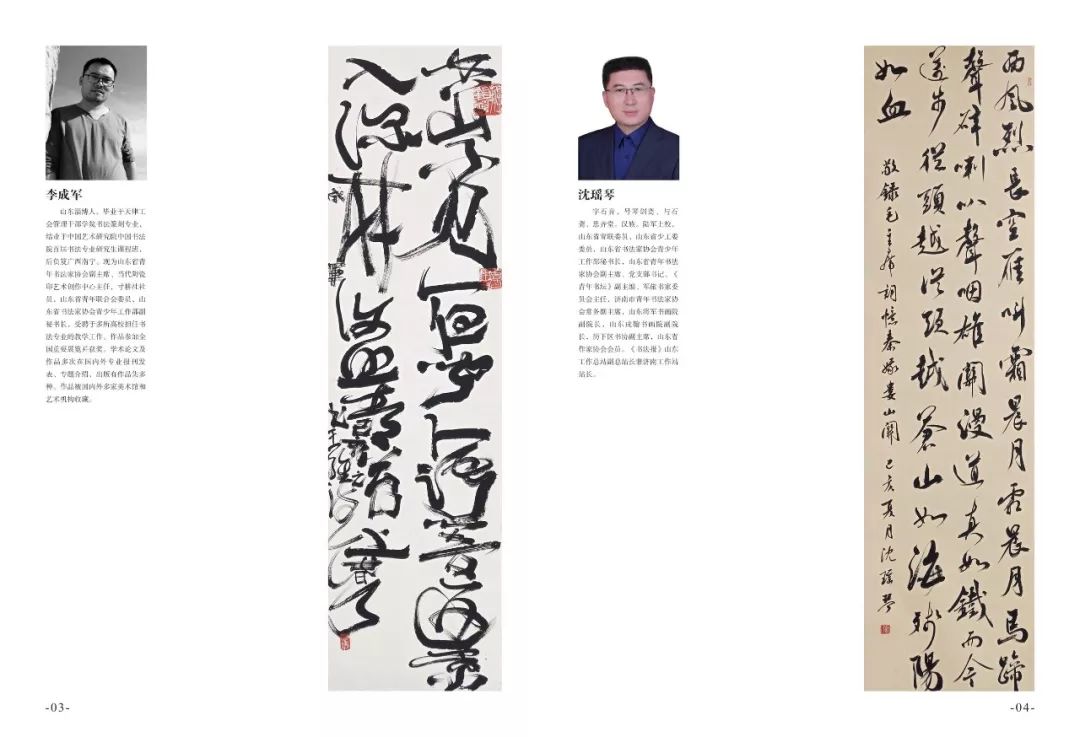 李成军
山东淄博人。毕业于天津工
会管理干部学院书法篆刻专业，
结业于中国艺术研究院中国书法
院首届书法专业研究生课程班，
后负笈广西南宁。现为山东省青
年书法家协会副主席、当代陶瓷
印艺术创作中心主任，寸耕社社
员，山东省青年联合会委员，山
东省书法家协会青少年工作部副
秘书长。受聘于多所高校担任书
法专业的教学工作。作品参加全
国重要展览并获奖。学术论文及
作品多次在国内外专业报刊发
表、专题介绍，出版有作品先多
种。作品被国内外多家美术馆和
艺术机构收藏。
空山不見人但聞人語響返景
入深林復照青苔上
-03-
沈瑶琴
字石音，号琴剑斋、与石
斋、思齐堂。汉族，陆军上校。
山东省青联委员、山东省少工委
委员、山东省书法家协会青少年
工作部秘书长，山东省青年书法
家协会副主席、党支部书记、《
青年书坛》副主编、军旅书家委
员会主任，济南市青年书法家协
会常务副主席，山东将军书画院
副院长，山东成翰书画院副院
长，历下区书协副主席，山东省
作家协会会员。《书法报》山东
工作总站副总站长兼济南工作站
站长。
西風烈長空雁叫霜晨月霜晨月馬蹄
聲碎喇叭聲咽雄關漫道真如鐵而今
邁步從頭越從頭越蒼山如海殘陽
如血
敬錄毛主席詞憶秦娥婁山關 己亥夏月沈瑤琴
-04-